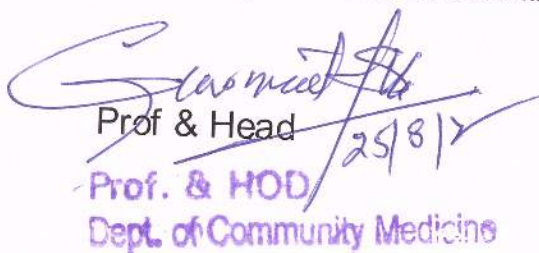 Prof & Head
25/8/2
Prof. & HOD
Dept. of Community Medicine